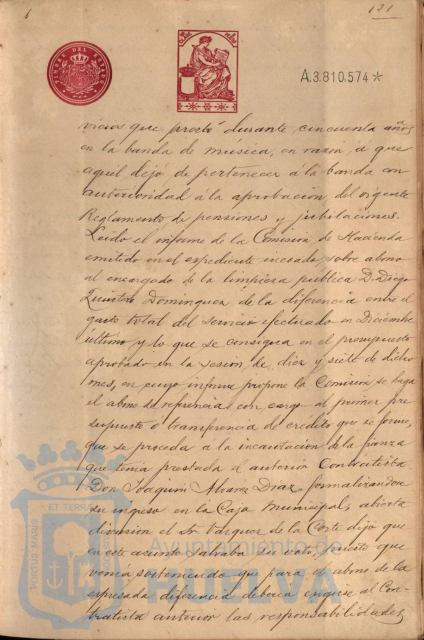 121
A.3.810.574*
vicios que prestó durante cincuenta años
en la banda de musica, en razón, a que
aquel dejó de pertenecer á la banda con
anterioridad á la aprobacion del vigente
Reglamento de pensiones y jubilaciones.
Leido el informe de la Comision de Hacienda
emitido en el expediente incoado sobre abono
al encargado de la limpieza publica D. Diego
Quintero Dominguez de la diferencia entre el
gasto total del servicio efectuado en Diciembre
último y lo que se consigna en el presupuesto
aprobado en la sesion de diez y siete de dicho
mes, en cuyo informe propone la Comision se haga
el abono de referencia con cargo al primer pre
supuesto ó transferencia de crédito que se forme,
que se proceda a la incautacion de la fianza
que tenia prestada el anterior Contratista
Don Joaquin Alvarez Diaz formalizandose
su ingreso en la Caja Municipal, abierta
discusion el Sr. Vazquez de la Corte dijo que
en este asunto salvaba su voto, puesto que
venia sosteniendo que para el abono de la
expresada diferencia deberia exigirse al Con-
tratista anterior las responsabilidades
PORTUS MARIS ET TERRAE
Ayuntamiento de
HUELVA